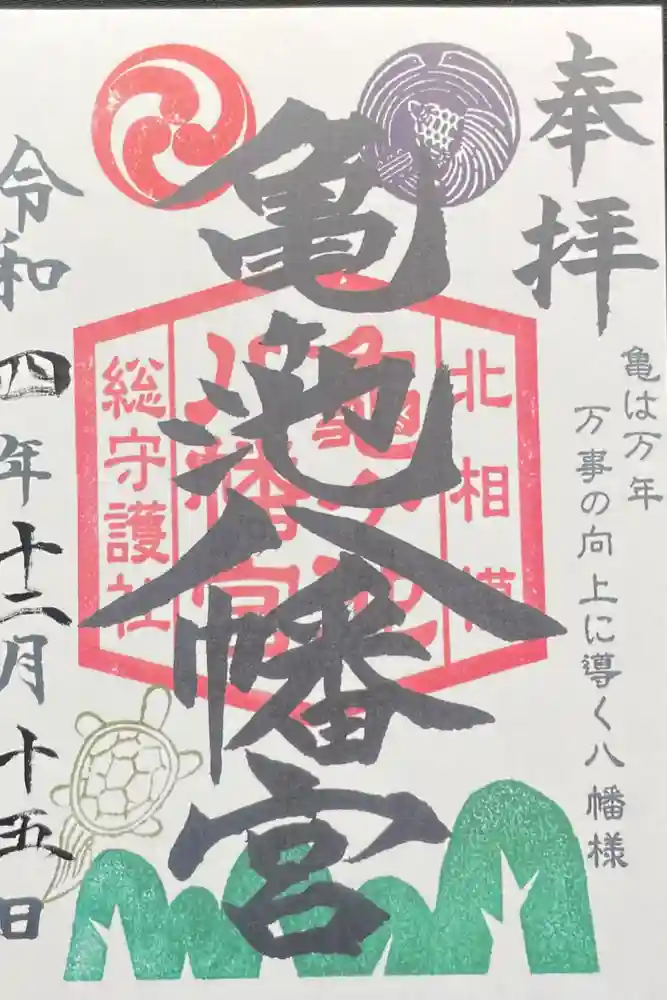 奉拝
亀は万年
万事の向上に導く八幡様
北相模
亀ヶ池
八幡宮
総守護社
亀池八幡宮
令和四年十二月十五日